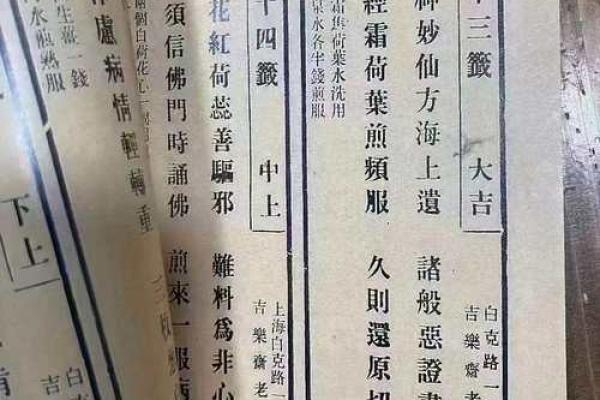 十三籤 大吉
白克路一
吉樂齋老
神妙仙方海上遺 諸般惡證
經霜荷葉煎頻服 久則還原
霜焦荷葉水洗用
泉水各半錢煎服
十四籤 中上
上海白克路一
吉樂齋老
花紅荷蕊善驅邪 難料爲非心
須信佛門時誦佛 煎來一服病
兩個白荷花心一
慮病情輕轉重 三枚
生薑一錢
水煎熟服
下上
白
吉